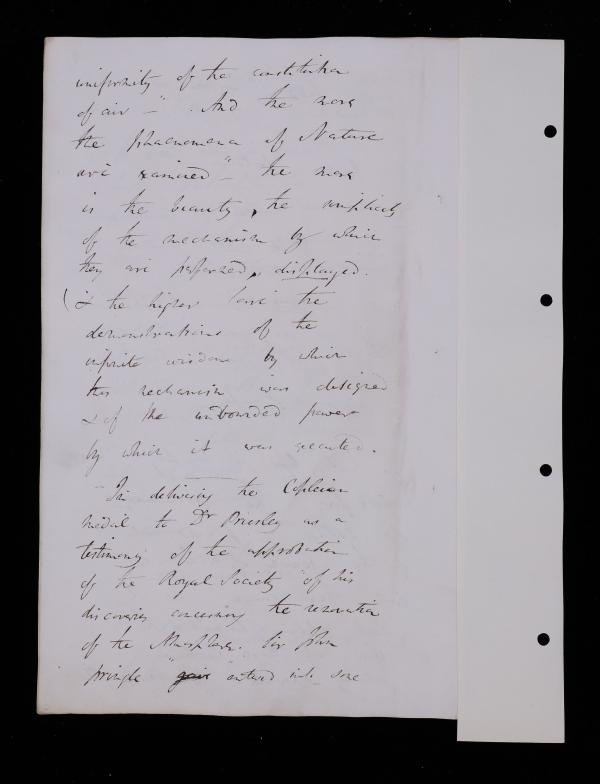 uniformity of the constitution
of air —". And the more
the phaenomena of Nature
are examined" — the more
is the beauty, the simplicity
of the mechanism by which
they are performed, displayed.
(& the higher are the
demonstrations of the
infinite wisdom by which
this mechanism was designed
& of the unbounded power
by which it was executed.
"In delivering the Copleian
medal to Dr Priestley as a
testimony of the approbation
of the Royal Society "of his
discoveries concerning the renovation
of the Atmosphere. Sir John
Pringle "gave entered into some